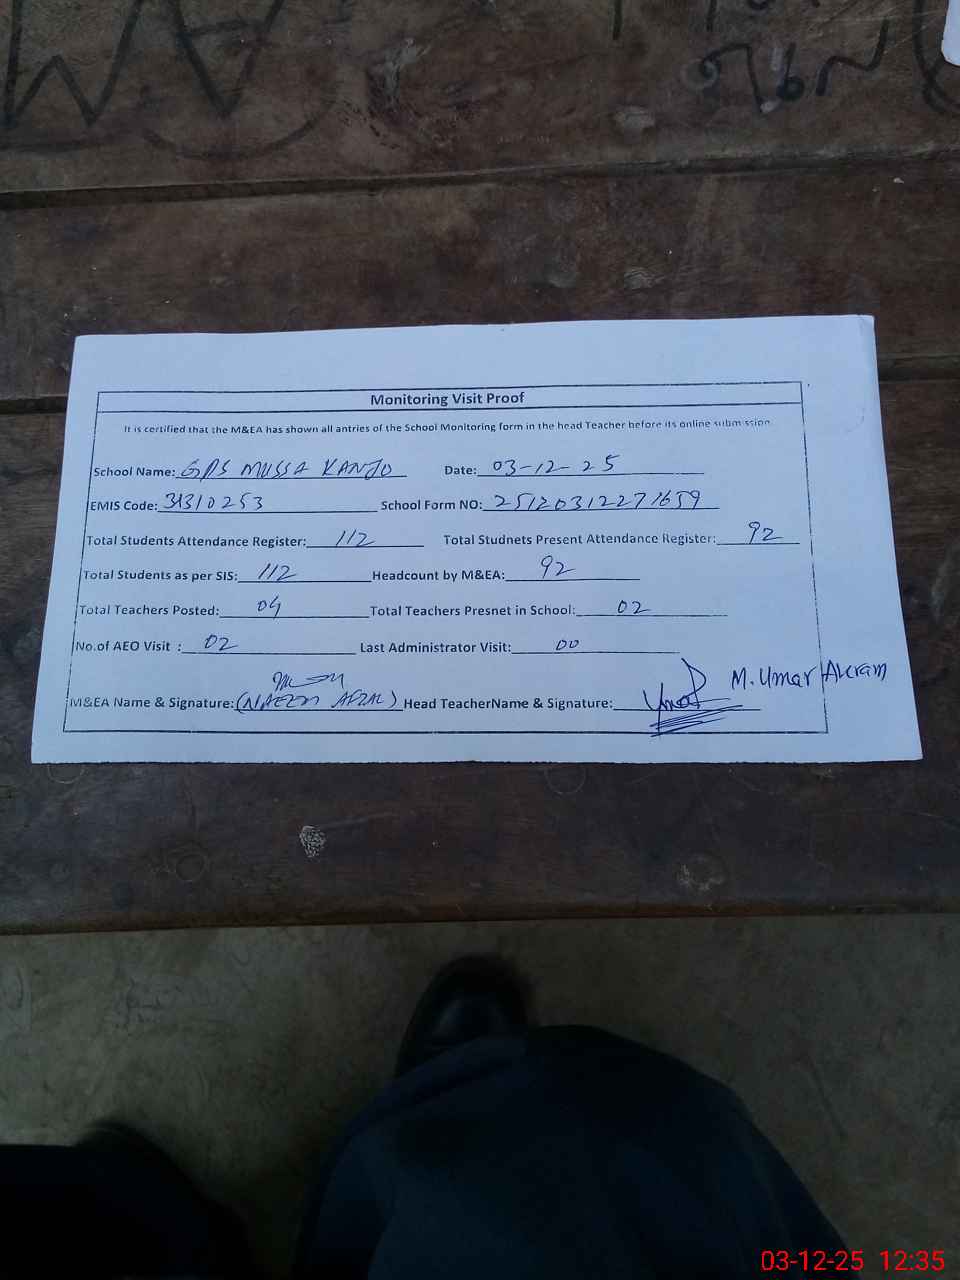 Monitoring Visit Proof
It is certified that the M&EA has shown all antries of the School Monitoring form in the head Teacher before its online submission.
School Name: GPS MUSSA KANJO Date: 03-12-25
EMIS Code: 31310253 School Form NO: 25120312271659
Total Students Attendance Register: 112 Total Studnets Present Attendance Register: 92
Total Students as per SIS: 112 Headcount by M&EA: 92
Total Teachers Posted: 04 Total Teachers Presnet in School: 02
No.of AEO Visit : 02 Last Administrator Visit: 00
M&EA Name & Signature: (NAEEM AFZAL) Head TeacherName & Signature: Umar M. Umar Akram
03-12-25 12:35